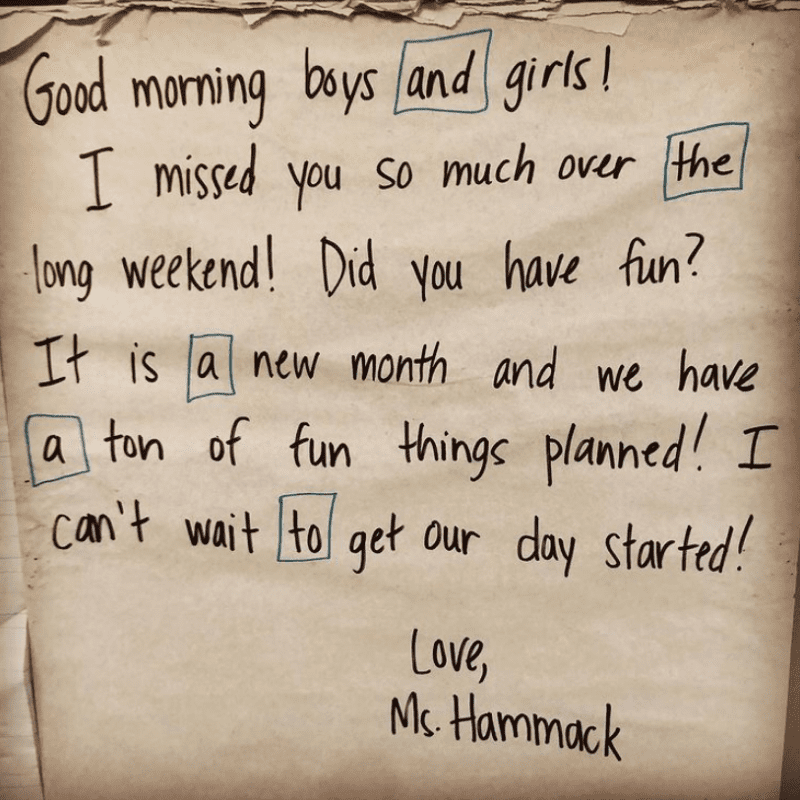 Good morning boys and girls!
I missed you so much over the
long weekend! Did you have fun?
It is a new month and we have
a ton of fun things planned! I
can't wait to get our day started!
Love,
Ms. Hammack